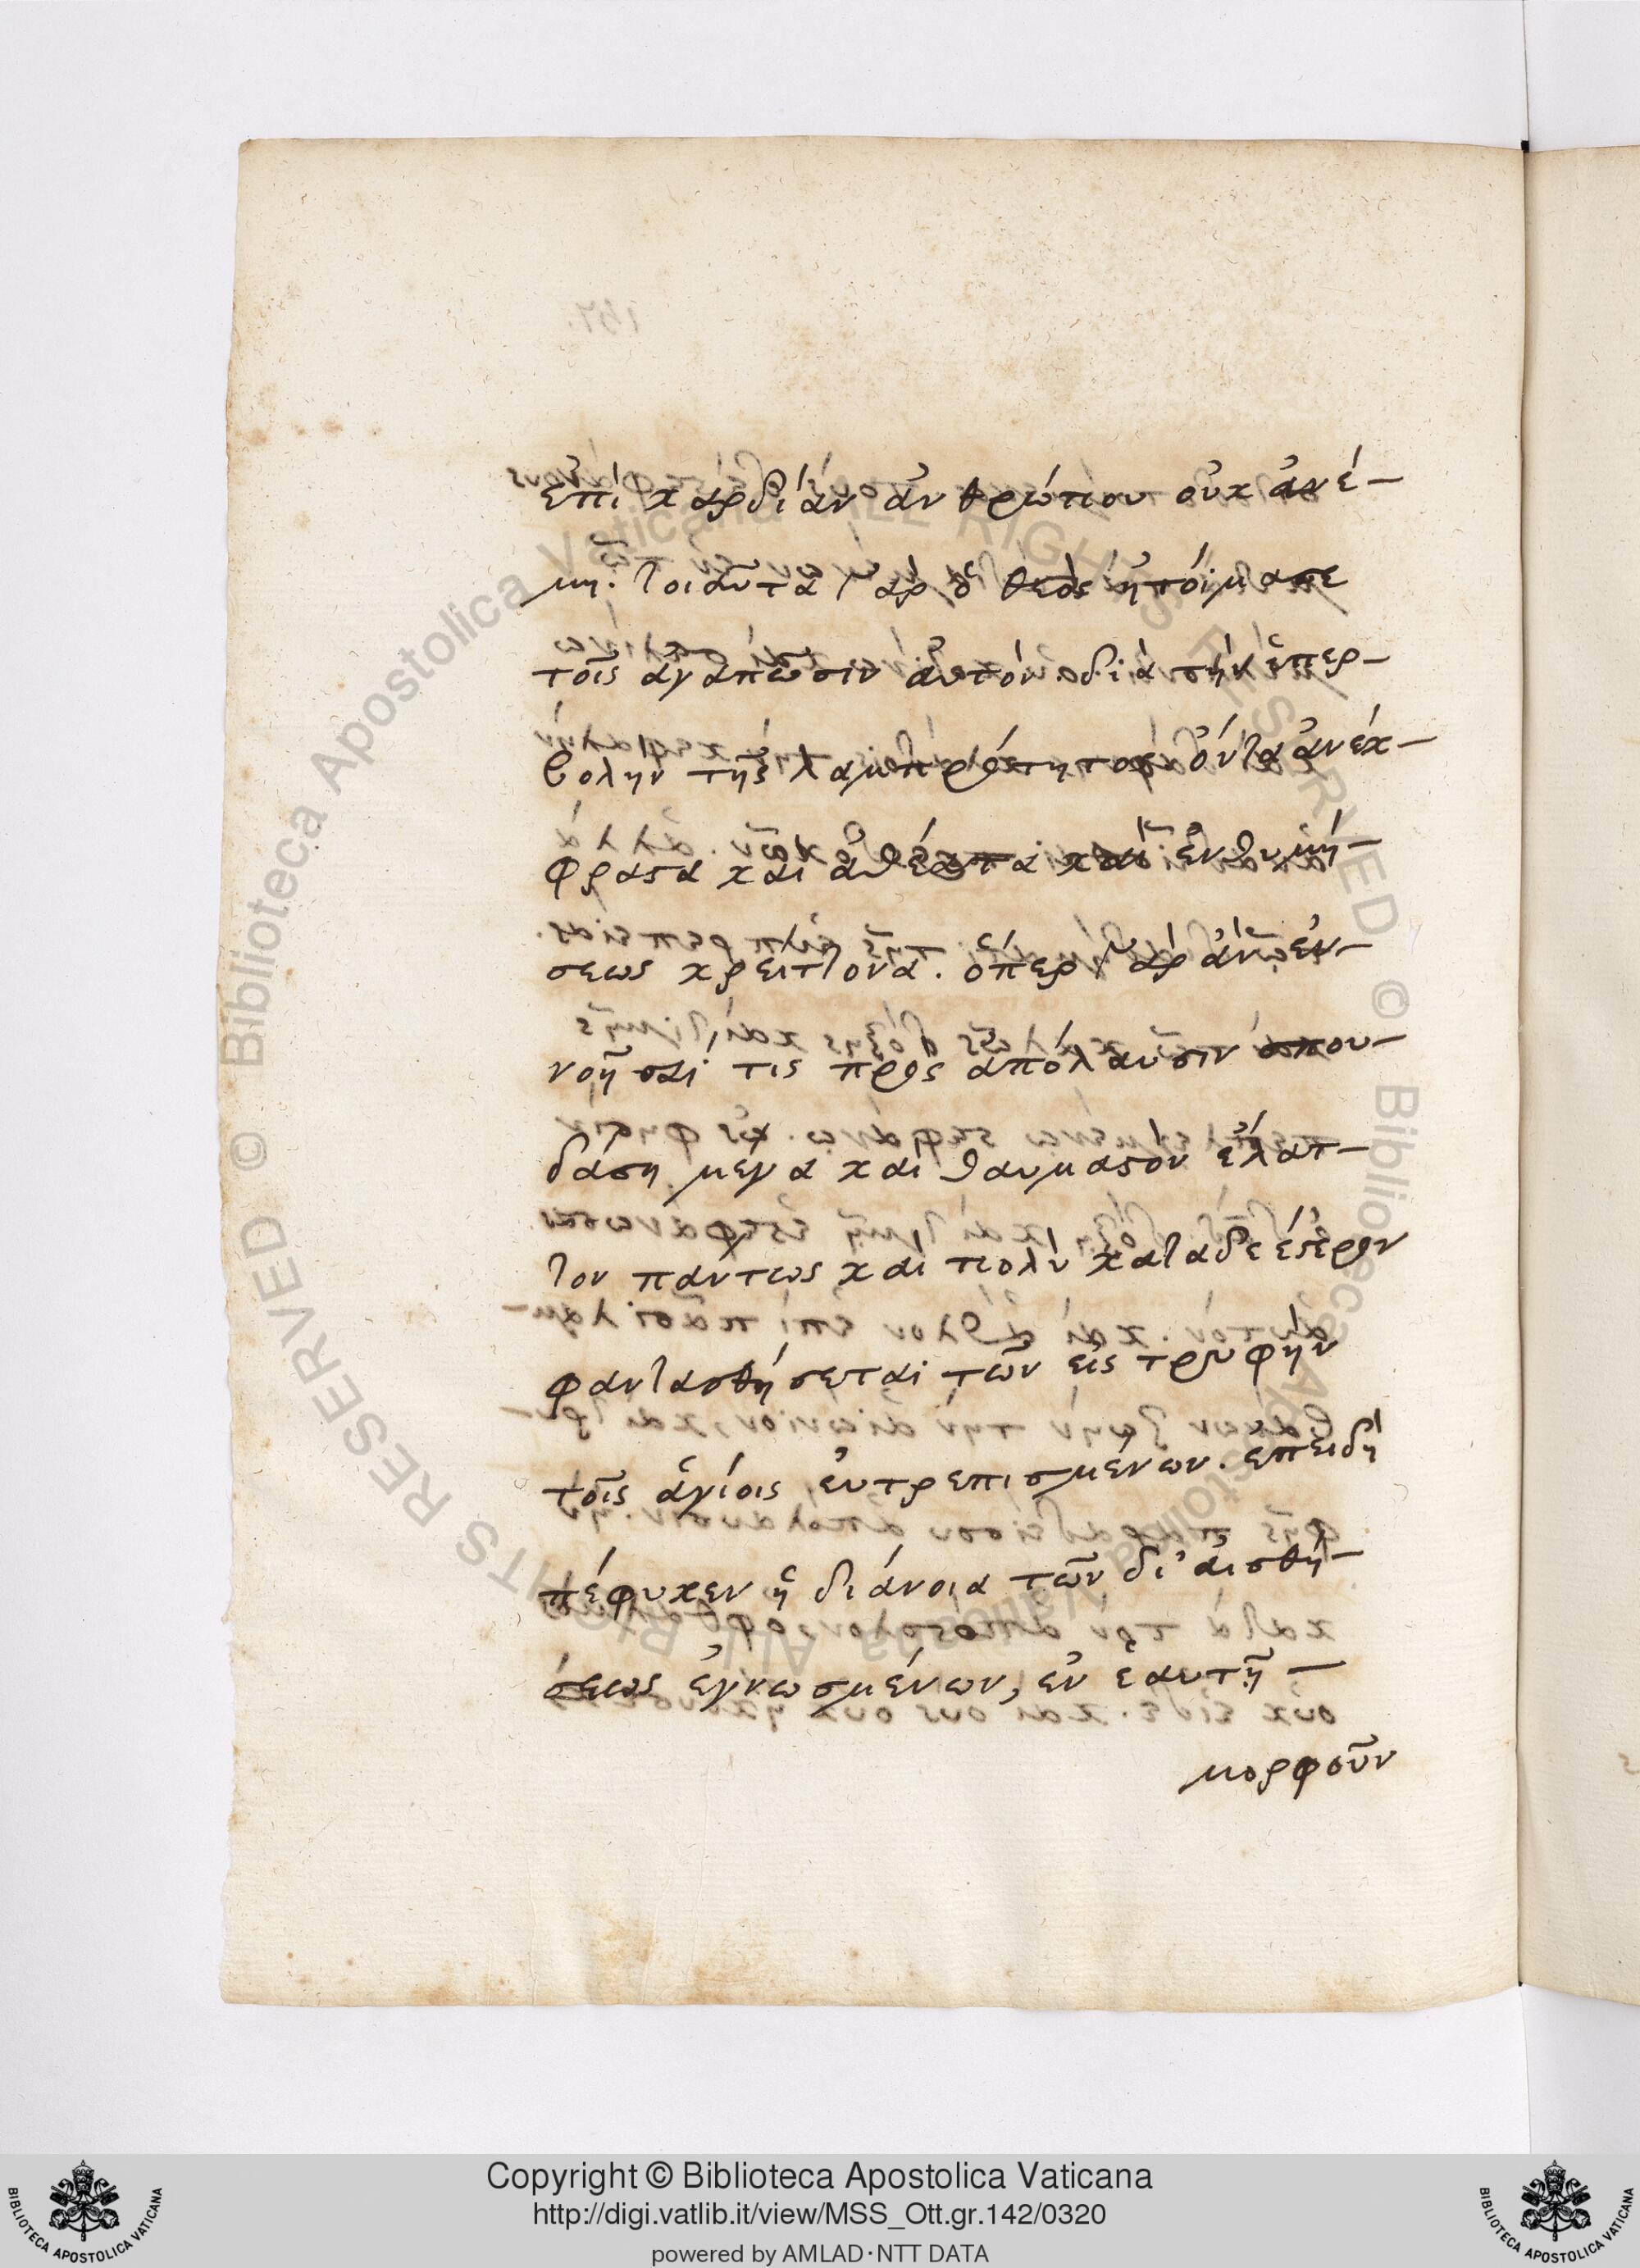 ἐπὶ καρδίαν ἀνθρώπου οὐκ ἀνέ-
μη. τοιαῦτα γὰρ ὁ θεὸς ἡτοίμασε
τοῖς ἀγαπῶσιν αὐτόν. διὰ τὴν ὑπερ-
βολὴν τῆς λαμπρότητος ὄντα ἀνέκ-
φραστα καὶ ἀθέατα καὶ ἐνθυμή-
σεως κρείττονα. ὅπερ γὰρ ἂν ἐν-
νοῆσαί τις πρὸς ἀπόλαυσιν σπου-
δάσῃ μέγα καὶ θαυμαστὸν ἔλατ-
τον πάντως καὶ πολὺ καταδεέστερον
φαντασθήσεται τῶν εἰς τρυφὴν
τοῖς ἁγίοις εὐτρεπισμένων. ἐπειδὴ
πέφυκεν ἡ διάνοια τῶν δι' αἰσθή-
σεως ἐγνωσμένων, ἐν ἑαυτῇ -
μορφοῦν
Copyright © Biblioteca Apostolica Vaticana
http://digi.vatlib.it/view/MSS_Ott.gr.142/0320
powered by AMLAD·NTT DATA
BIBLIOTECA APOSTOLICA VATICANA
BIBLIOTECA APOSTOLICA VATICANA